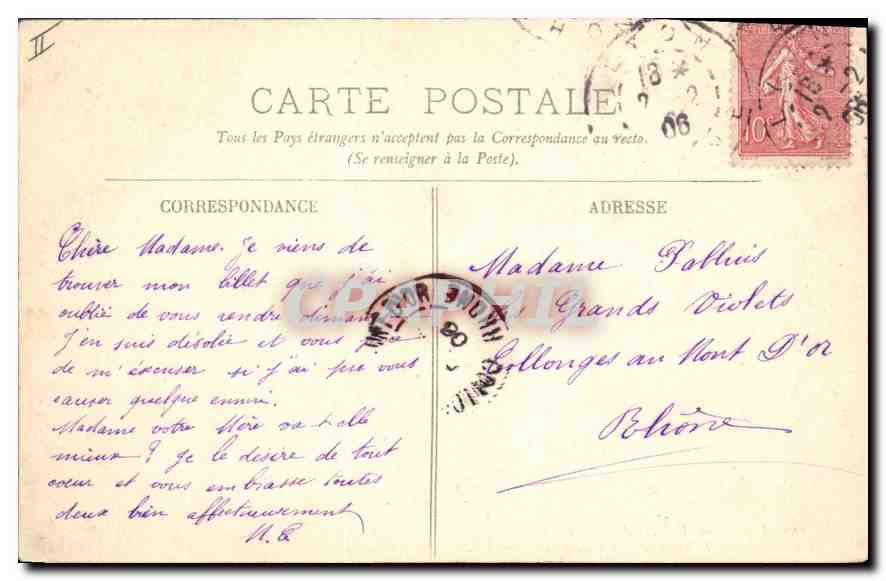 II
CARTE POSTALE
Tous les Pays étrangers n'acceptent pas la Correspondance au recto.
(Se renseigner à la Poste).
CORRESPONDANCE
Chère Madame. Je viens de
trouver mon billet que j'ai
oublié de vous rendre dimanche
J'en suis désolée et vous prie
de m'excuser si j'ai pu vous
causer quelque ennui.
Madame votre Mère va t elle
mieux? Je le désire de tout
cœur et vous embrasse toutes
deux bien affectueusement
ADRESSE
Madame
Les Grands Violets
Collonges au Mont D'or
Rhône
10
06
RHONE